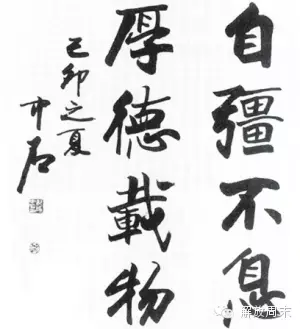 自彊不息
厚德載物
己卯之夏
中石
解放周末